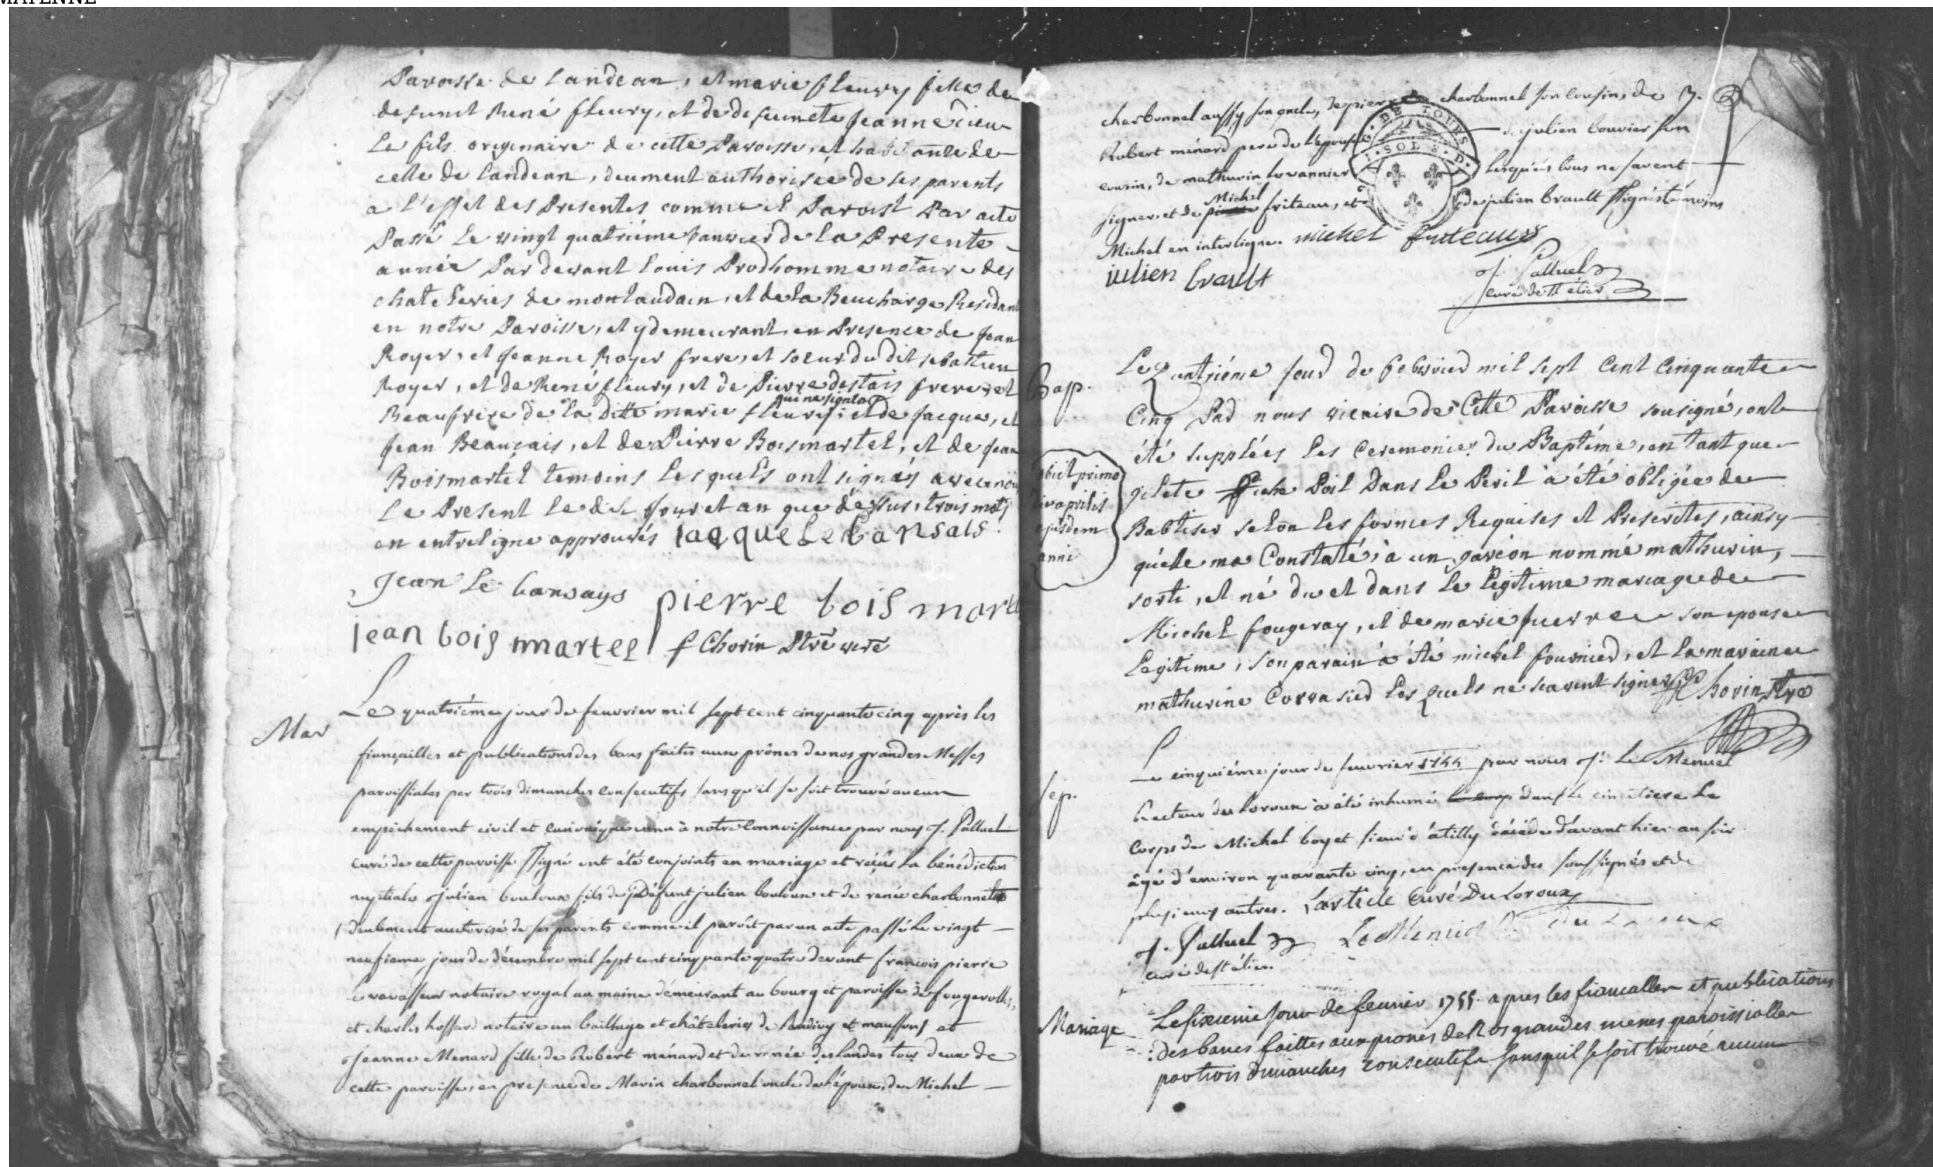 MAYENNE
Paroisse de Landean, et marie fleury fille de
defunt René fleury, et de defuncte jeanne Dieu
le fils originaire de cette Paroisse, et habitante de
celle de Landean, deument authorisée de ses parents
a l'effet des Presentes comme il Paroist Par acte
Passé le vingt quatriéme janvier de la Presente
année Par devant Louis Prodhomme notaire des
chatelenies de montaudain, et de la Beucharge Residant
en notre Paroisse, et y demeurant, en Presence de jean
Royer, et jeanne Royer frere, et soeur du dit sebastien
Royer, et de René fleury, et de Pierre destais freres et
qui ne signe
Beaufrere de la ditte marie fleury, et de jacque, et
jean Beançais, et de Pierre Boismartel, et de jean
Boismartel temoins lesquels ont signés avec nous
Le Present le dit jour et an que dessus, trois mots
en entreligne approuvés jacque Le bansais
Jean Le bansays pierre bois mart
jean bois martel f Chorin Ptre vire
Mar
Le quatriéme jour de feuvrier mil sept cent cinquante cinq après les
fiançailles et publications des bans faites aux prônes de nos grandes Messes
paroissiales par trois dimanches consecutifs sans qu'il se soit trouvé aucun
empêchement civil et canonique venu à notre connoissance par nous J. Palluel
curé de cette paroisse ssigné ont été conjoints en mariage et reçûs la bénédiction
nuptiale Julien bouloux fils de Défunt julien bouloux et de renée charbonnel
deubment auctorisé de ses parents comme il paroît par un acte passé le vingt
neufieme jour de décembre mil sept cent cinquante quatre devant françois pierre
levavasseur notaire royal au maine demeurant au bourg et paroisse de fougerolles,
et charles hossard notaire au bailliage et châtelenies de Landivy et mausson, et
Jeanne Menard fille de Robert ménard et de renée deslandes tous deux de
cette paroisse, en presence de Marin charbonnel oncle de l'époux, de Michel
charbonnel aussy son oncle, de pierre charbonnel son cousin, de
Robert ménard pere de l'épouse, de julien bouvier son
cousin, de mathurin levannier lesquels tous ne savent
Michel
signer, et de friteau, et de julien brault ssignés témoins
Michel en interligne. michel friteaux
julien brault J. Palluel
curé de St elier
G. DE TOURS
SOL
Bap.
Le quatriéme jour de febvrier mil sept cent cinquante
Cinq Par nous vicaire de Cette Paroisse sousigné, ont
été supplées les Ceremonies du Baptéme, en tant que
gilete Poil Dans le Peril à été obligée de
Baptiser selon les formes Requises et Prescrites, ainsy
quelle ma Constaté, à un garçon nommé mathurin,
sorti, et né du et dans le legitime mariage de
Michel fougeray, et de marie fuerre son epouse
Legitime, son parain à été michel fournier, et la maraine
mathurine Corrasier lesquels ne scavent signer Chorin Ptre
obiit primo
aprilis
ejusdem
anni
Sep.
Le cinquiéme jour de feuvrier 1755 par nous J: Le Menuel
Recteur du Loroux à été inhumé dans le cimetiere le
corps de Michel boyet sieur d'atilly décédé d'avant hier au soir
âgé d'environ quarante cinq, en presence des soussignés et de
plusieurs autres. Lartiele Curé Du Loroux
J. Palluel Le Menuel
curé de St elier.
Mariage
Le sixieme jour de fevrier 1755. apres les fiancalles et publications
des bancs faittes aux prones de Nos grandes messes paroissialles
par trois dimanches consecutifs sans qu'il se soit trouvé aucun